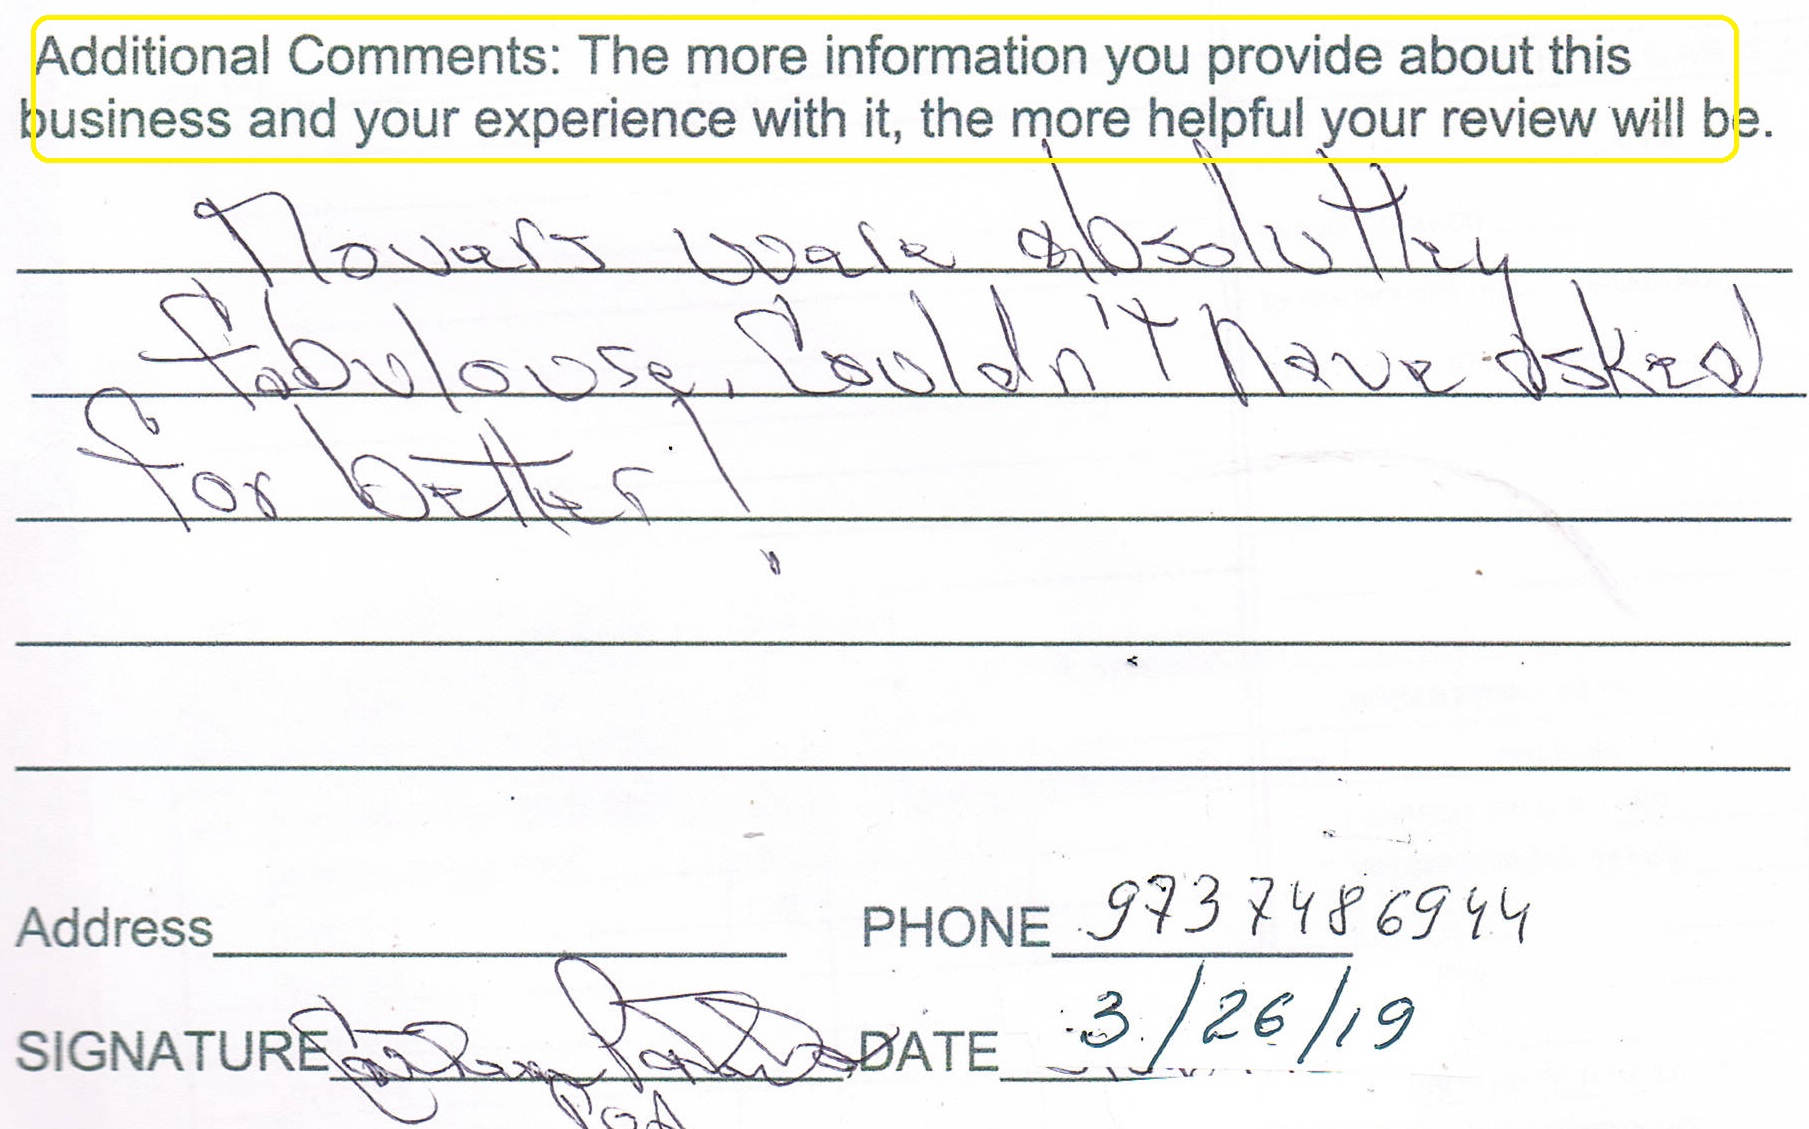 Additional Comments: The more information you provide about this
business and your experience with it, the more helpful your review will be.
Movers were absolutley
fabulouse, Couldn't have asked
for better!
Address PHONE 9737486944
SIGNATURE DATE 3/26/19
POA